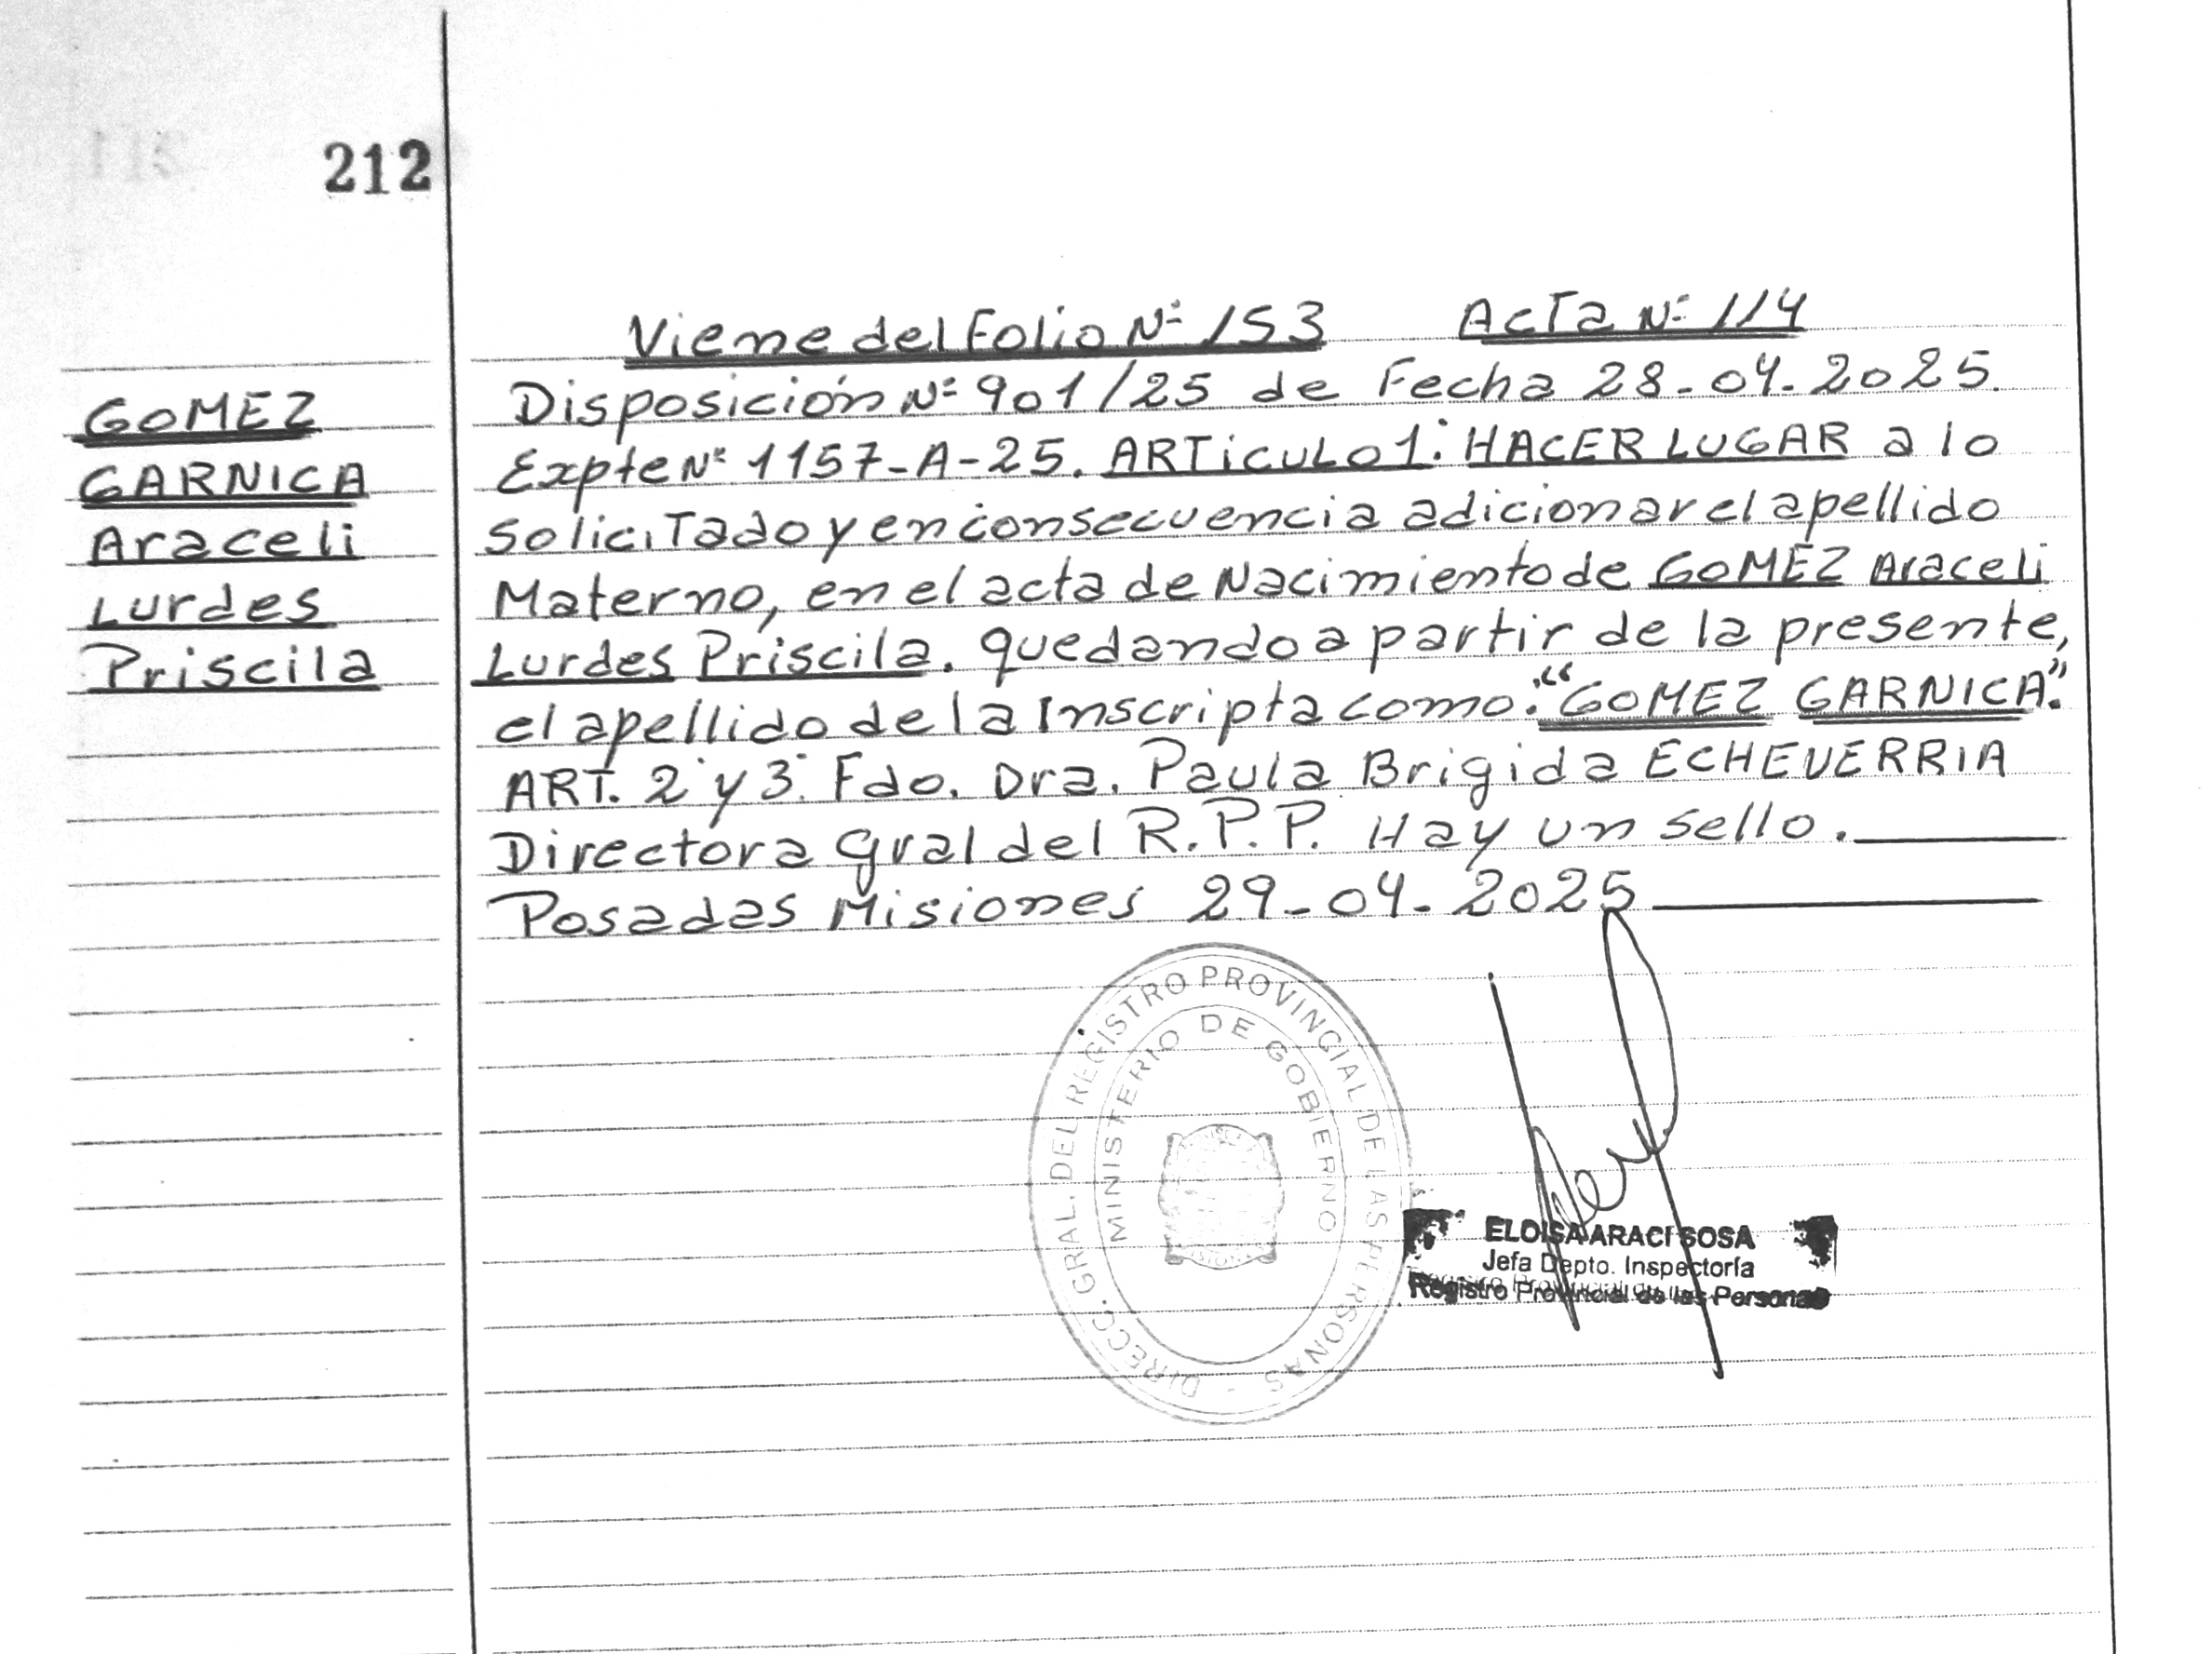 212
Viene del Folio Nº 153 Acta Nº 114
GOMEZ
GARNICA
Araceli
Lurdes
Priscila
Disposición Nº 901/25 de Fecha 28-04-2025.
Expte Nº 1157-A-25. ARTICULO 1º: HACER LUGAR a lo
solicitado y en consecuencia adicionar el apellido
Materno, en el acta de Nacimiento de GOMEZ Araceli
Lurdes Priscila. quedando a partir de la presente,
el apellido de la Inscripta como: "GOMEZ GARNICA".
ART. 2º y 3º. Fdo. Dra. Paula Brigida ECHEVERRIA
Directora Gral del R.P.P. Hay un sello.
Posadas Misiones 29-04-2025
DIRECC. GRAL. DEL REGISTRO PROVINCIAL DE LAS PERSONAS -
MINISTERIO DE GOBIERNO
ELOISA ARACI SOSA
Jefa Depto. Inspectoría
Registro Provincial de las Personas